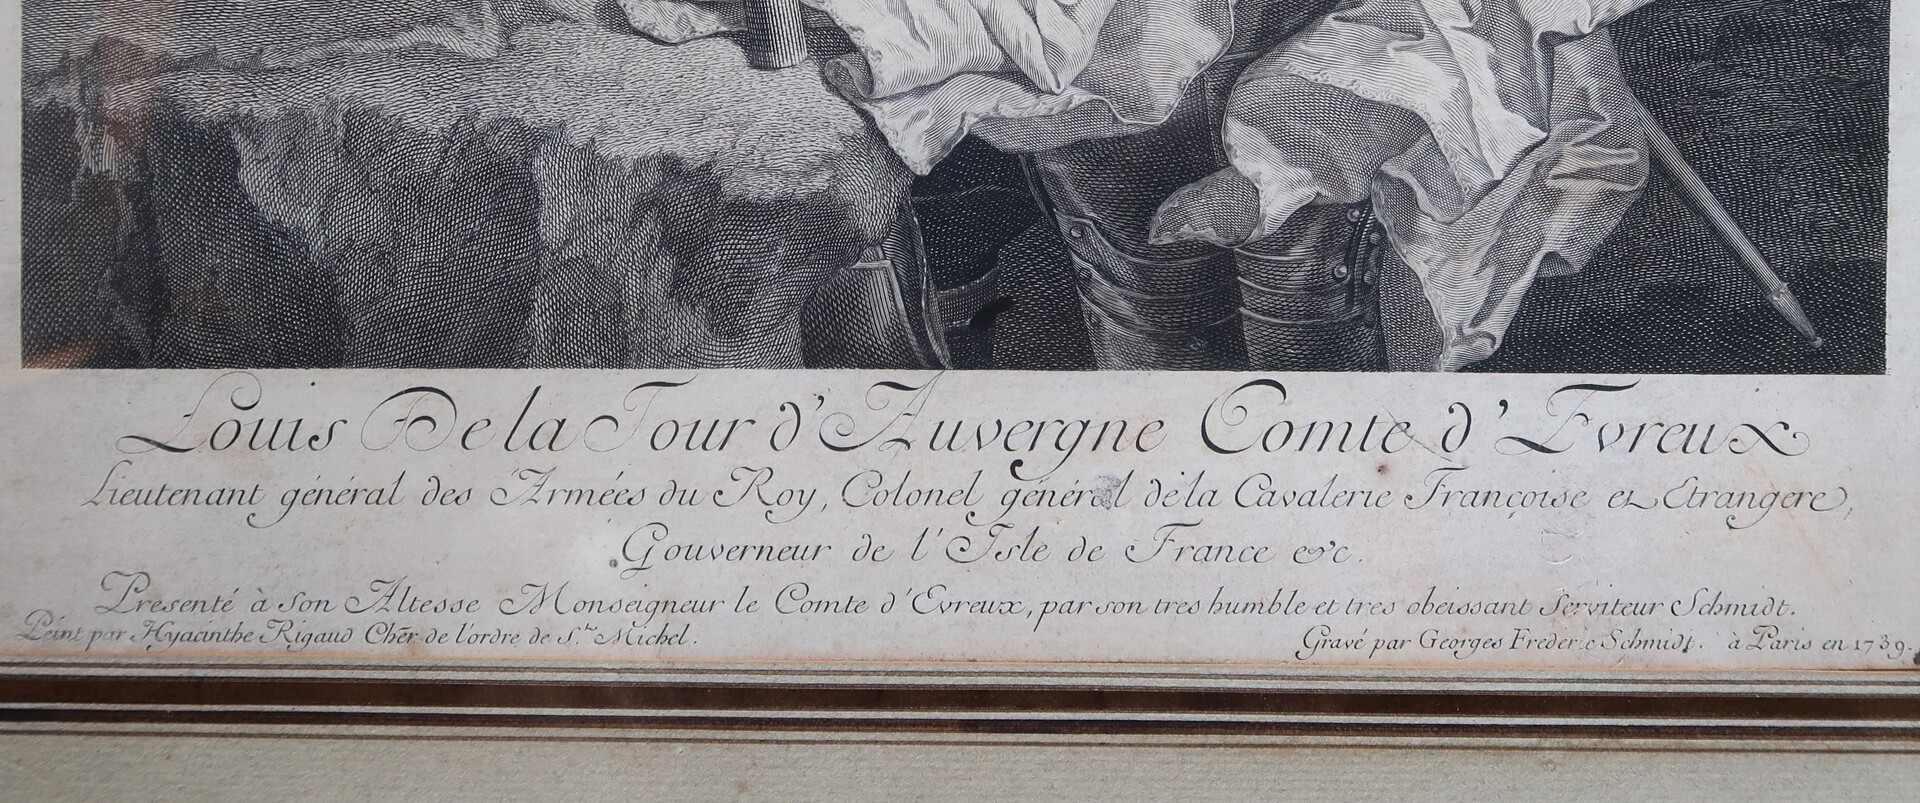 Louis De la Tour d'Auvergne Comte d'Evreux
Lieutenant général des Armées du Roy, Colonel général de la Cavalerie Françoise et Etrangere,
Gouverneur de l'Isle de France &c.
Presenté à Son Altesse Monseigneur le Comte d'Evreux, par son tres humble et tres obeissant Serviteur Schmidt.
Peint par Hyacinthe Rigaud Chēr. de l'ordre de St. Michel.
Gravé par Georges Frederic Schmidt. à Paris en 1739.